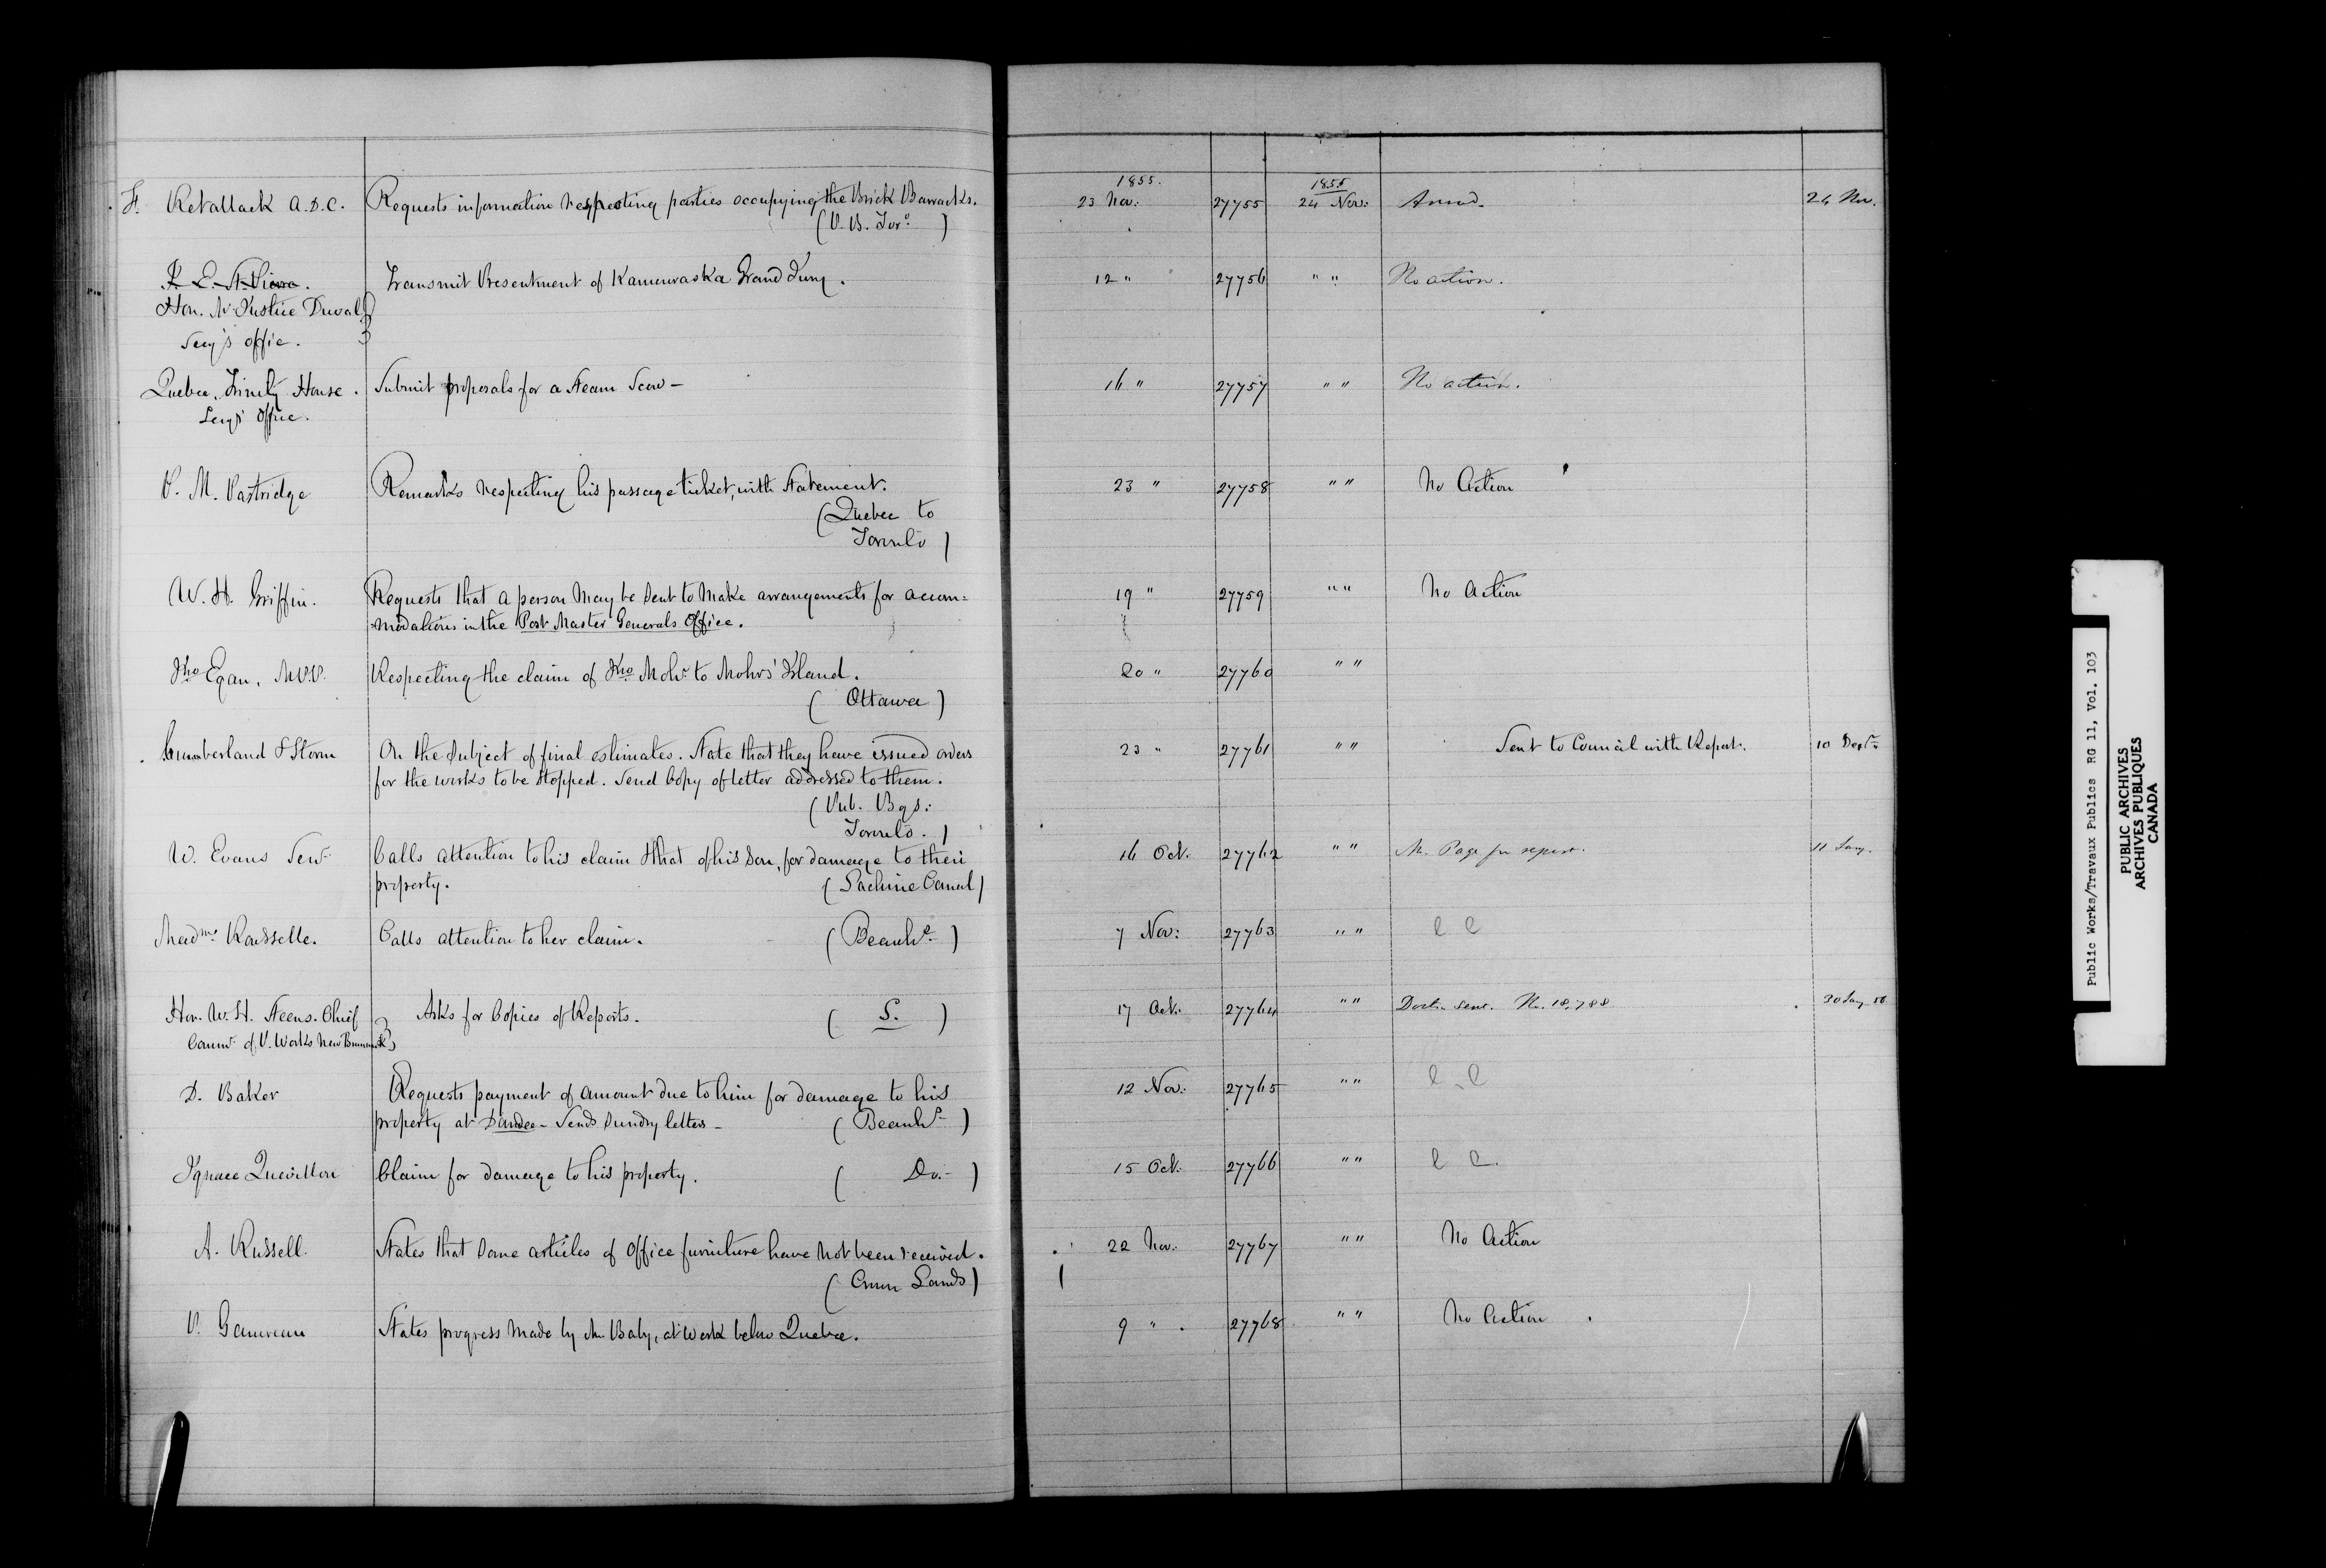 1855. 1855
F. Retallack A.D.C. Requests information respecting parties occupying the Brick Barracks. 23 Nov: 27755 24 Nov: Answd. 24 Nov.
(P. B. Tor:o)
Transmit Presentment of Kamouraska Grand Jury. 12 " 27756 " " No action.
Hon. Mr Justice Duval }
Secy's office. }
Quebec, Trinity House. Submit proposals for a Steam Scow - 16 " 27757 " " No action.
Secy's Office.
P. M. Partridge Remarks respecting his passage ticket, with Statement. 23 " 27758 " " No Action
(Quebec to
Toronto)
W. H. Griffin. Requests that a person may be sent to make arrangements for accom= 19 " 27759 " " No Action
modations in the Post Master Generals Office.
Jno Egan, M.P.P. Respecting the claim of Jno Mohr to Mohrs' Island. 20 " 27760 " "
(Ottawa)
Cumberland & Storm On the subject of final estimates. State that they have issued orders 23 " 27761 " " Sent to Council with Report. 10 Decr
for the works to be stopped. Send Copy of letter addressed to them.
(Pub. Bgs:
Toronto.)
W. Evans Senr Calls attention to his claim & that of his Son, for damage to their 16 Oct. 27762 " " Mr. Page for report. 11 Jany.
property. (Lachine Canal)
Madme Rousselle. Calls attention to her claim. (Beauhs) 7 Nov: 27763 " "
Hon. W. H. Steens. Chief } Asks for Copies of Reports. (S.) 17 Oct: 27764 " " Docts. sent. No. 18,788 30 Jany. 56
Commr of P. Works New Brunswick }
D. Baker Requests payment of amount due to him for damage to his 12 Nov: 27765 " "
property at Dundee - Sends Sundry letters - (Beauhs)
Ignace Quevillon Claim for damage to his property. (Do.-) 15 Oct: 27766 " "
A. Russell. States that some articles of Office furniture have not been received. 22 Nov: 27767 " " No Action
(Crown Lands)
P. Gauvreau States progress made by Mr. Baby, at work below Quebec. 9 " 27768 " " No Action
Public Works/Travaux Publics RG 11, Vol. 103
PUBLIC ARCHIVES
ARCHIVES PUBLIQUES
CANADA